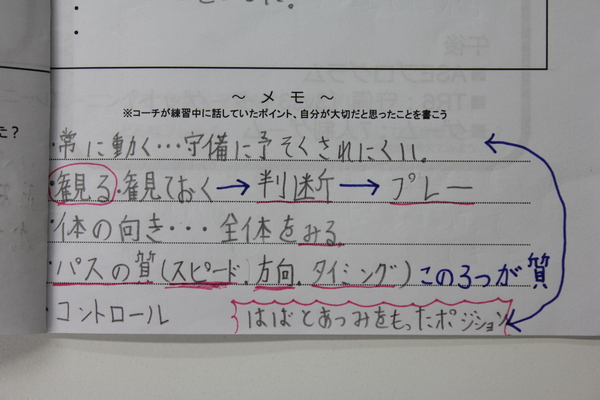 ～ メ モ ～
※コーチが練習中に話していたポイント、自分が大切だと思ったことを書こう
・常に動く・・・守備に予そくされにくい。
・観る・観ておく→判断→プレー
・体の向き・・・全体をみる
・パスの質(スピード.方向.タイミング)この3つが質
・コントロール はばとあつみをもったポジション
た？